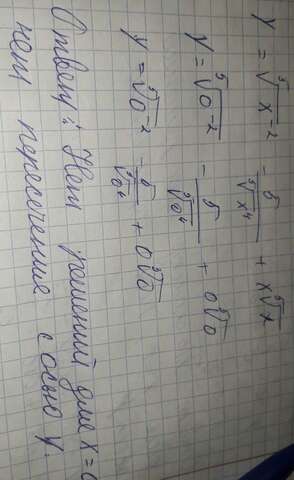 y = ⁵√x⁻² - 6/⁵√x⁴ + x⁵√x
y = ⁵√0⁻² - 6/⁵√0⁴ + 0⁵√0
y = ⁵√0⁻² - 6/⁵√0⁴ + 0⁵√0
Ответ: Нет решений для x = 0
нет пересечение с осью y.